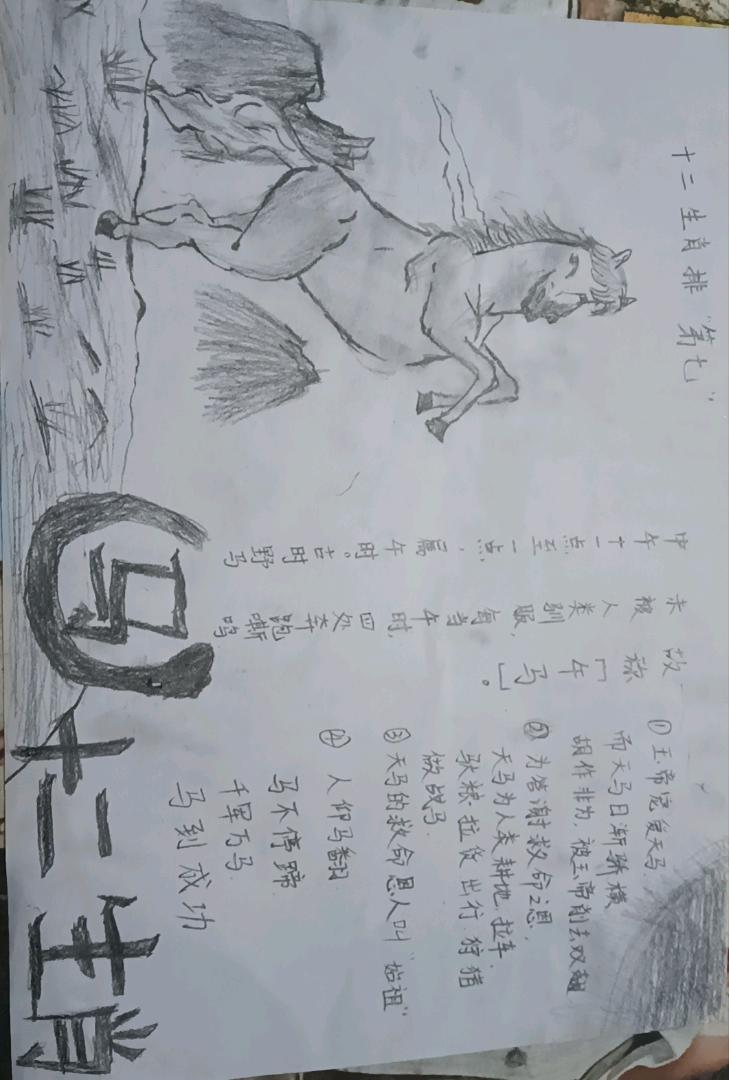 十二生肖排"第七"
中午十一点至一点,属午时。古时野马
未被人类驯服,每当午时,四处奔跑嘶鸣
故称「午马」。
①玉帝宠爱天马
而天马日渐骄横
胡作非为,被玉帝削去双翅
②为答谢救命之恩,
天马为人类耕地、拉车、
驮粮、拉货、出行、狩猎
做战马.
③天马的救命恩人叫"始祖"
④人仰马翻
马不停蹄
千军万马
马到成功
马
十二生肖